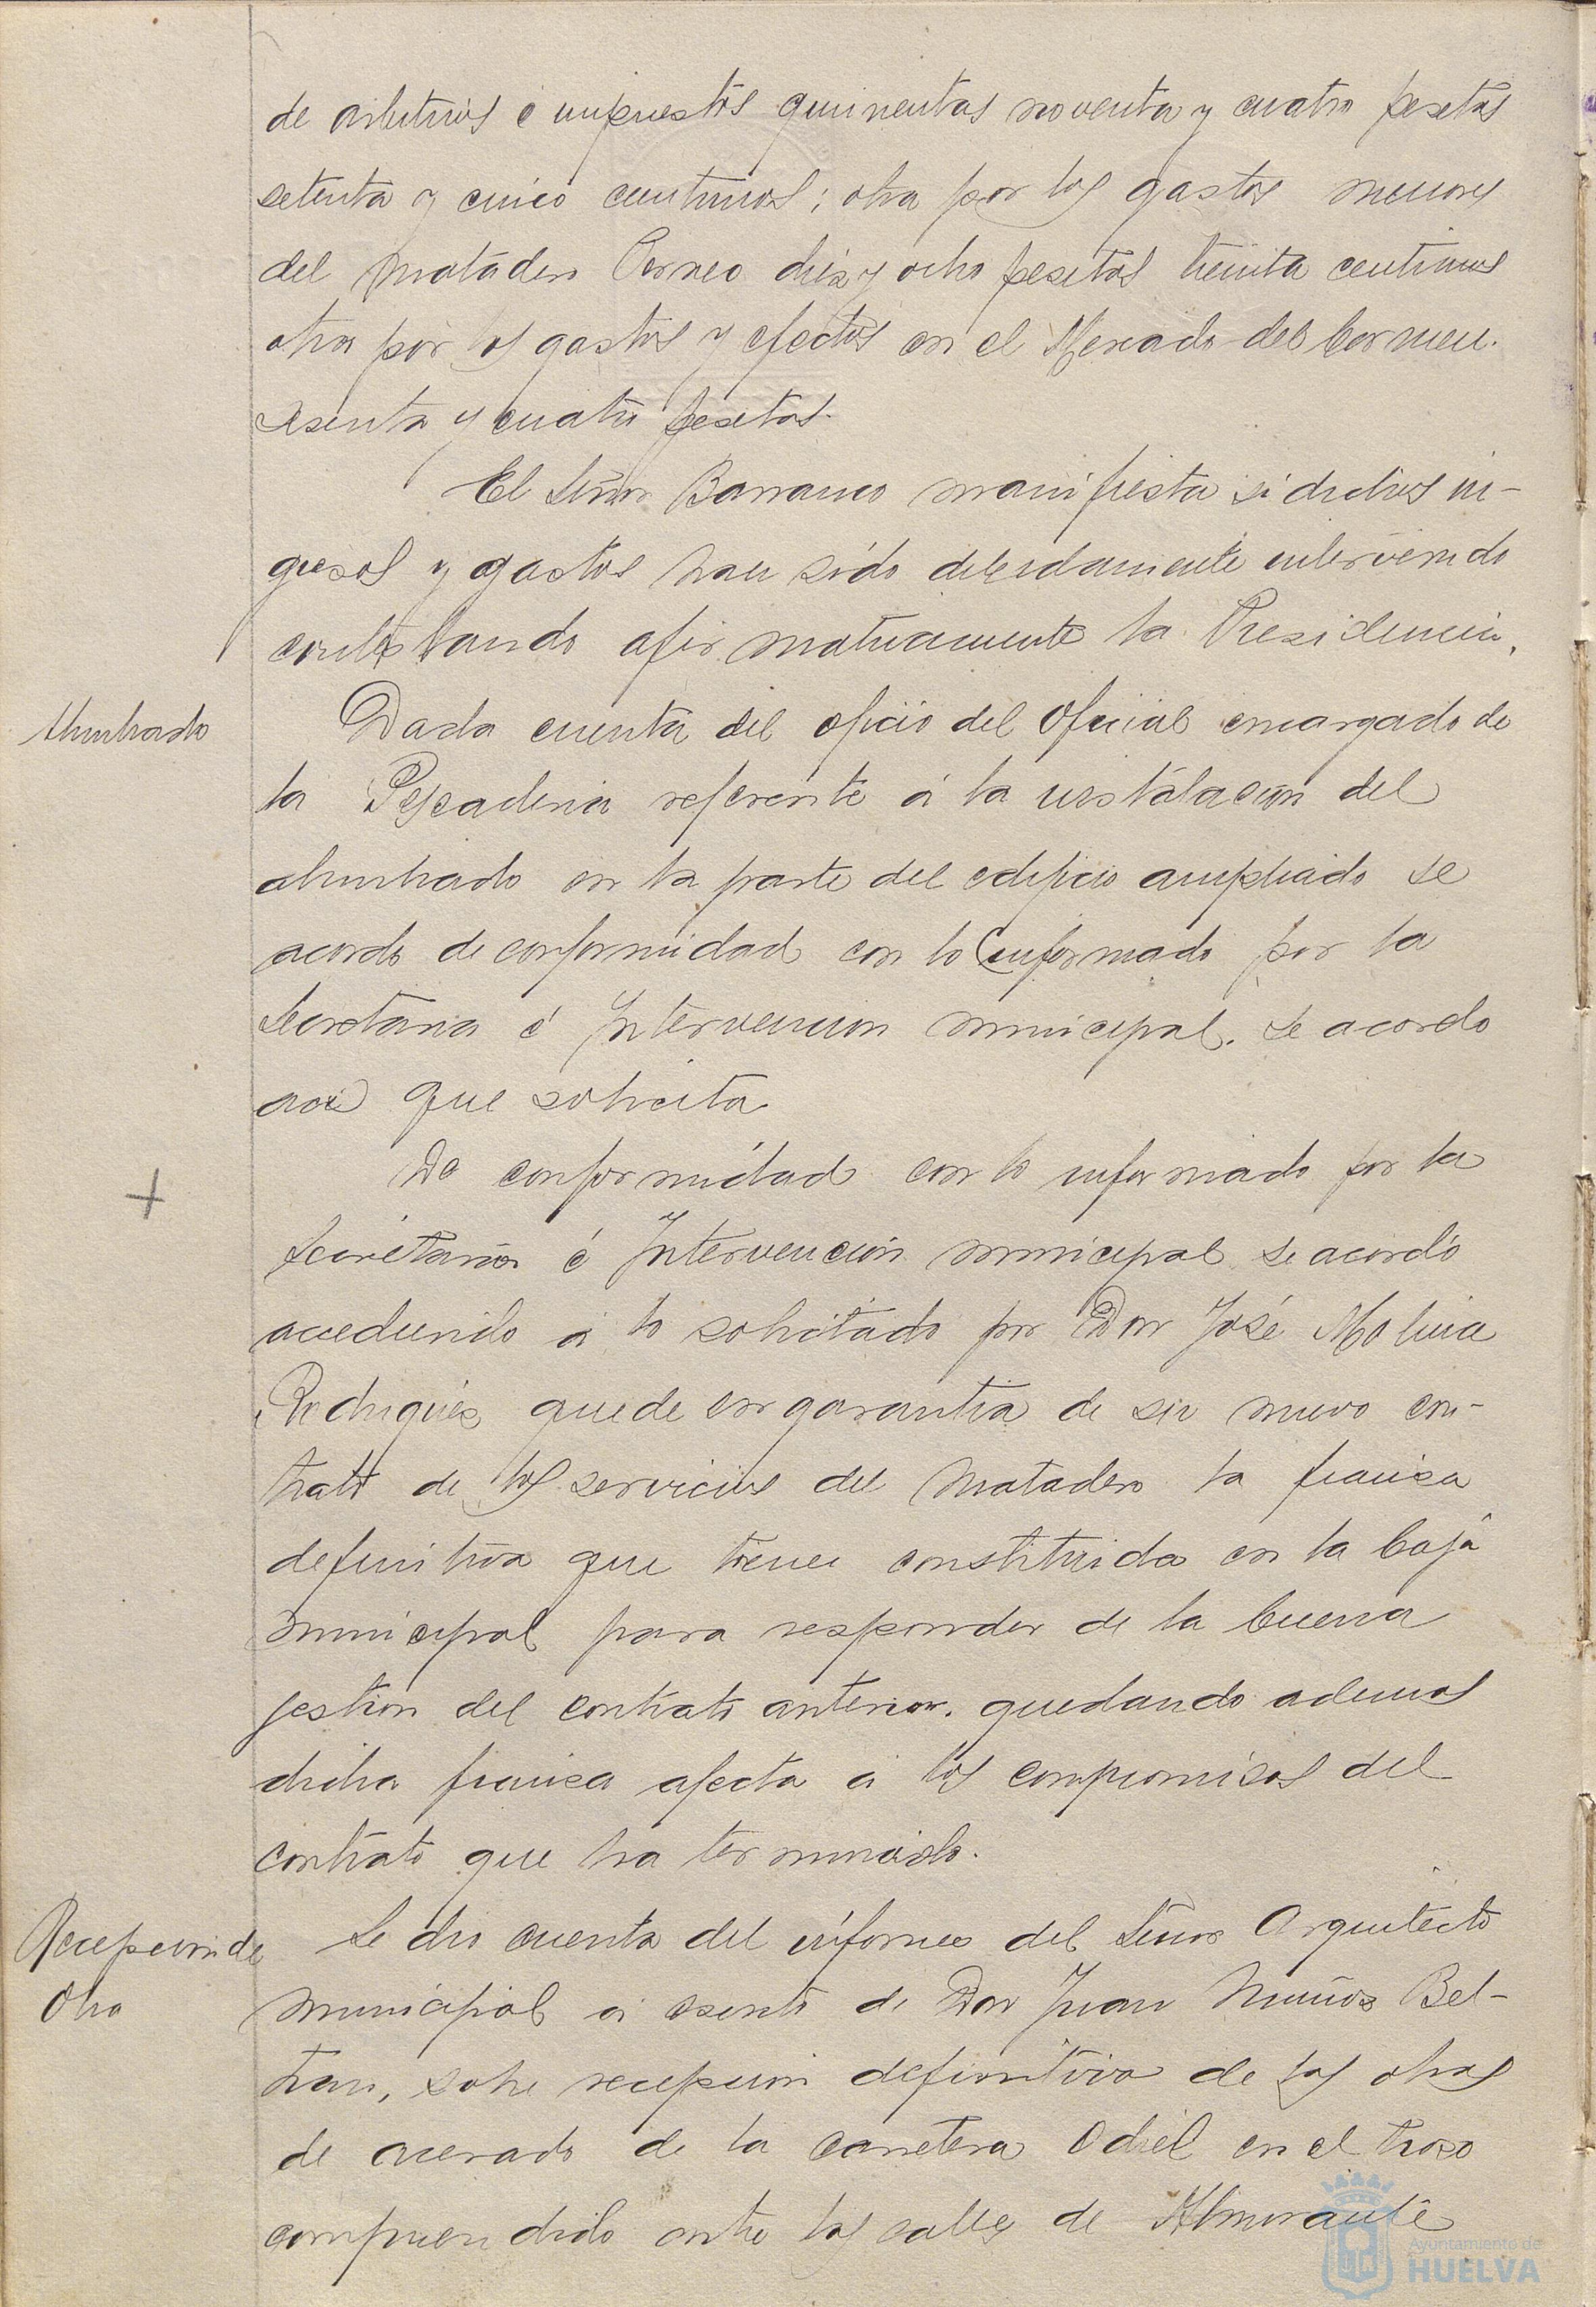 de arbitrios é impuestos quinientas noventa y cuatro pesetas
setenta y cinco centimos; otra por los gastos menores
del matadero diez y ocho pesetas treinta centimos
otra por los gastos y efectos en el Mercado del Carmen.
sesenta y cuatro pesetas.
El Señor Barranco manifiesta si dichos in-
gresos y gastos han sido debidamente intervenido
contestando afirmativamente la Presidencia.
Alumbrado
Dada cuenta del oficio del Oficial encargado de
la Pescaderia referente á la instalacion del
alumbrado en la parte del edificio ampliado se
acordo de conformidad con lo informado por la
Secretaria é Intervencion municipal. se acordo
que solicita
De conformidad con lo informado por la
Secretaria é Intervención municipal se acordó
accediendo á lo solicitado por Don José Molina
Rodriguez quede en garantia de su nuevo con-
trato de los servicios del Matadero la fianza
definitiva que tiene constituida en la Caja
municipal para responder de la buena
gestion del contrato anterior. quedando ademas
dicha fianza afecta á los compromisos del
contrato que ha terminado.
Recepcion de
Obra
Se dio cuenta del informe del Señor Arquitecto
municipal á escrito de Don Juan Muñoz Bel-
tran, sobre recepcion definitiva de las obras
de acerado de la carretera Odiel en el trozo
comprendido entre las calles de Almirante
Ayuntamiento de
HUELVA